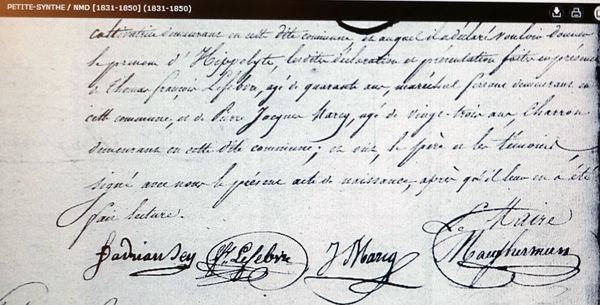 PETITE-SYNTHE / NMD [1831-1850] (1831-1850)
cultivatrice demeurant en cette dite commune et auquel il a déclaré vouloir donner
le prénom d'Hippolyte, lesdites déclaration et présentation faites en présence
de Thomas françois Lefebvre, agé de quarante ans, maréchal ferrant demeurant en
cette commune, et de Pierre Jacques Marcq, agé de vingt-trois ans, Charron
demeurant en cette dite commune; et ont, le père et les témoins
signé avec nous le présent acte de naissance, après qu'il leur en a été
fait lecture.
Le Maire
Lefebvre J Marcq